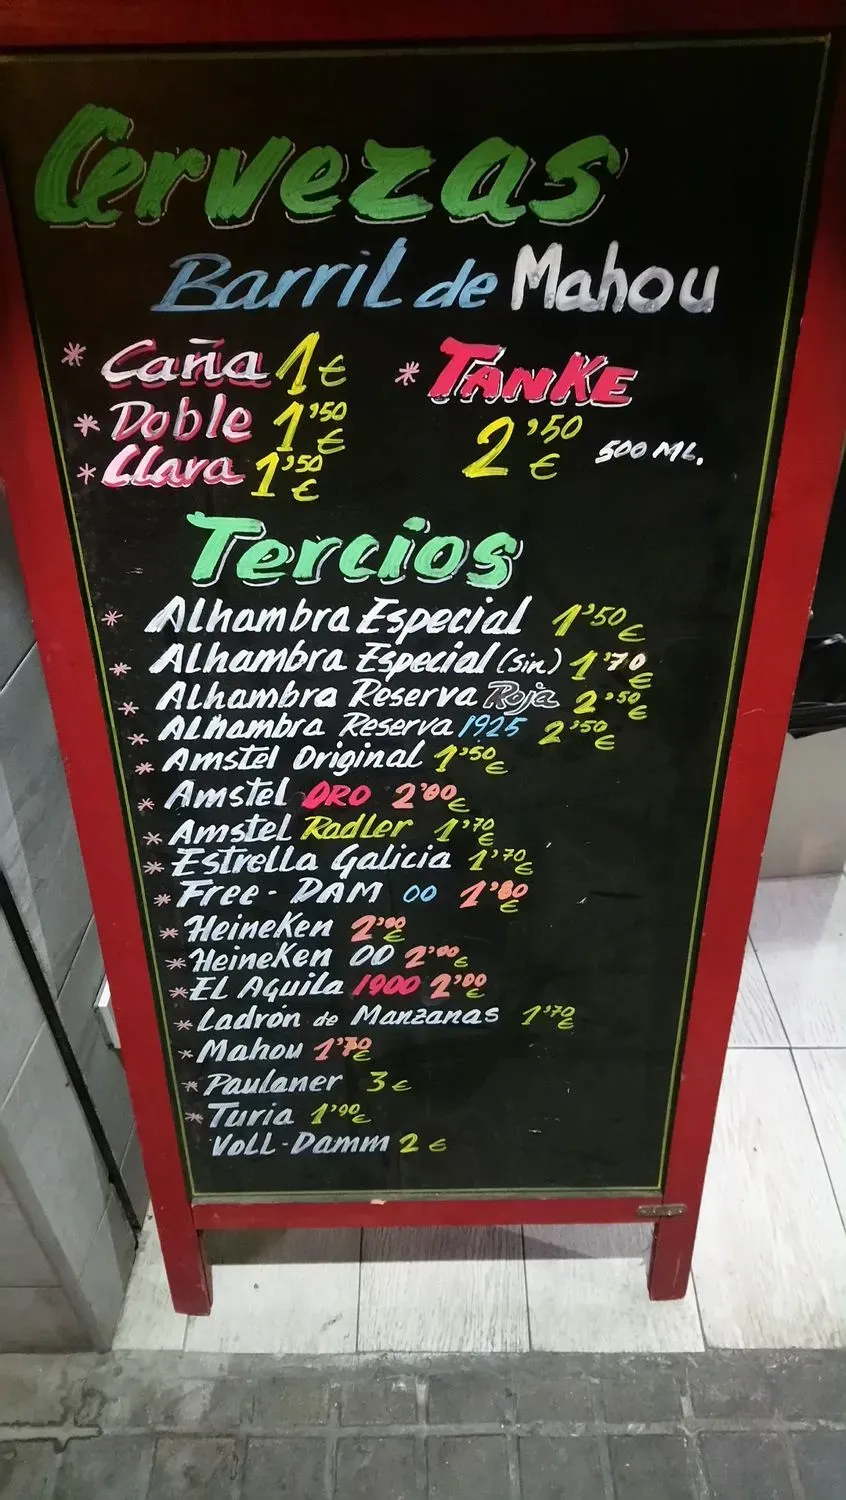 Cervezas
Barril de Mahou
* Caña 1€
* Doble 1'50 €
* Clara 1'50 €
* TANKE
2'50 € 500 ML.
Tercios
* Alhambra Especial 1'50 €
* Alhambra Especial (Sin) 1'70 €
* Alhambra Reserva Roja 2'50 €
* Alhambra Reserva 1925 2'50 €
* Amstel Original 1'50 €
* Amstel ORO 2'00 €
* Amstel Radler 1'70 €
* Estrella Galicia 1'70 €
* Free-DAM 00 1'80 €
* Heineken 2'00 €
* Heineken 00 2'00 €
* EL Aguila 1900 2'00 €
* Ladrón de Manzanas 1'70 €
* Mahou 1'70 €
* Paulaner 3 €
* Turia 1'90 €
VOLL-Damm 2 €